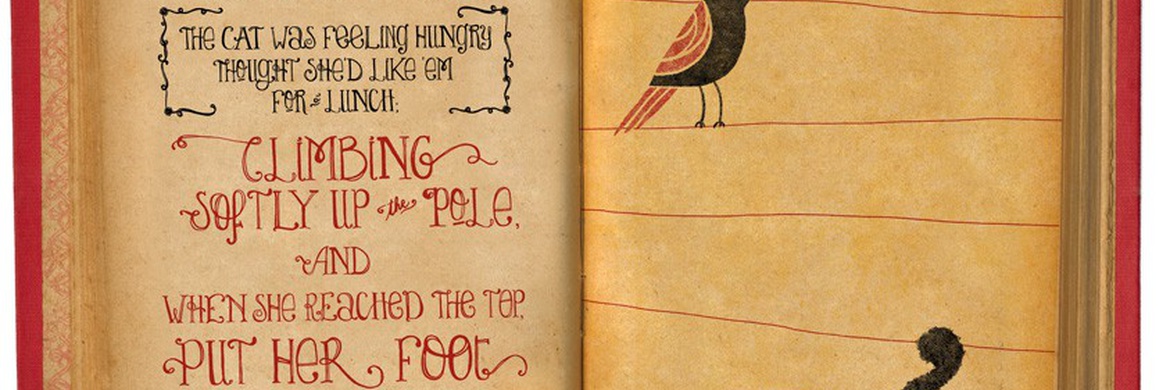 THE CAT WAS FEELING HUNGRY
THOUGHT SHE'D LIKE 'EM
FOR LUNCH;
CLIMBING
SOFTLY UP the POLE,
AND
WHEN SHE REACHED THE TOP,
PUT HER FOOT